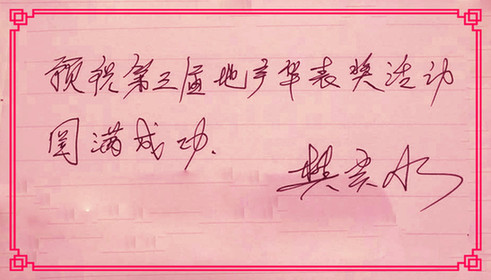 预祝第三届地产华表奖活动
圆满成功.
樊 水